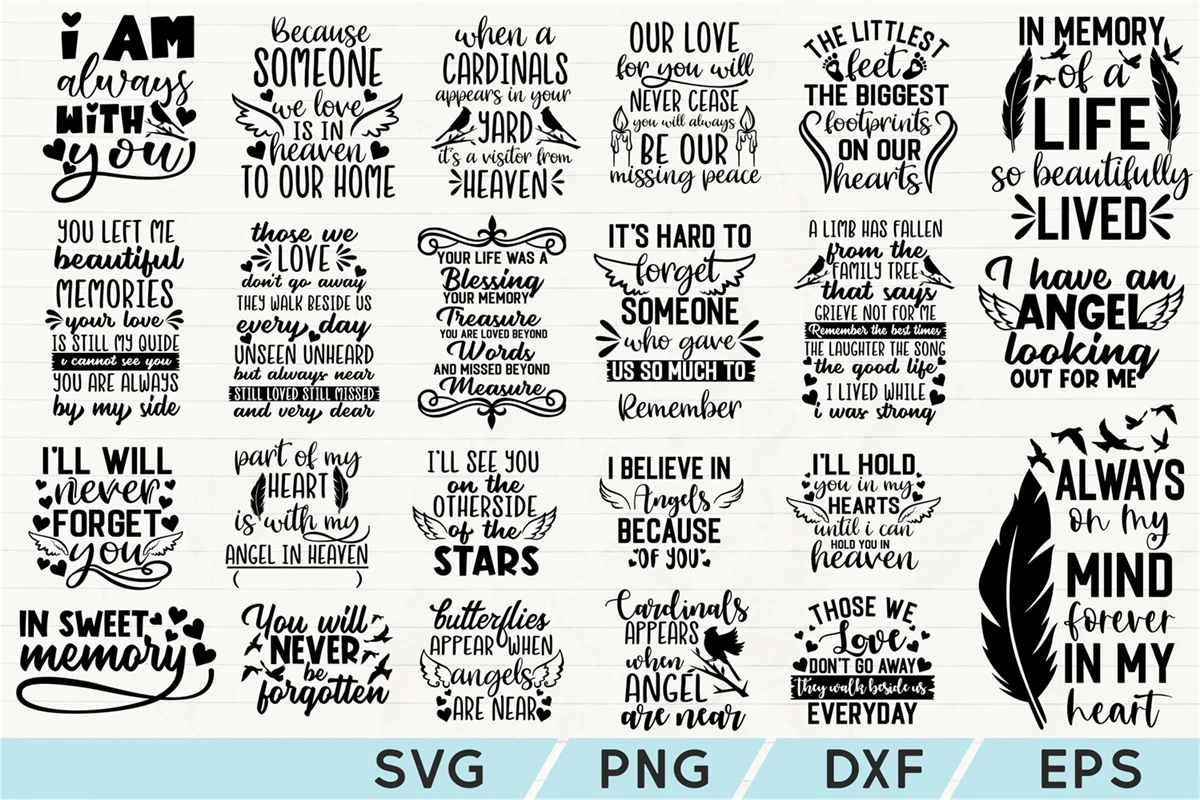 i AM
always
WITH
you
Because
SOMEONE
we love
IS IN
heaven
TO OUR HOME
when a
CARDINALS
appears in your
YARD
it's a visitor from
HEAVEN
OUR LOVE
for you will
NEVER CEASE
you will always
BE OUR
missing peace
THE LITTLEST
feet
THE BIGGEST
footprints
ON OUR
hearts
IN MEMORY
of a
LIFE
so beautifully
LIVED
YOU LEFT ME
beautiful
MEMORIES
your love
IS STILL MY GUIDE
i cannot see you
YOU ARE ALWAYS
by my side
those we
LOVE
don't go away
THEY WALK BESIDE US
every day
UNSEEN UNHEARD
but always near
STILL LOVED STILL MISSED
and very dear
YOUR LIFE WAS A
Blessing
YOUR MEMORY
Treasure
YOU ARE LOVED BEYOND
Words
AND MISSED BEYOND
Measure
IT'S HARD TO
forget
SOMEONE
who gave
US SO MUCH TO
Remember
A LIMB HAS FALLEN
from the
FAMILY TREE
that says
GRIEVE NOT FOR ME
Remember the best times
THE LAUGHTER THE SONG
the good life
I LIVED WHILE
i was strong
I have an
ANGEL
looking
OUT FOR ME
I'LL WILL
never
FORGET
you
part of my
HEART
is with my
ANGEL IN HEAVEN
I'LL SEE YOU
on the
OTHERSIDE
of the
STARS
I BELIEVE IN
Angels
BECAUSE
OF YOU
I'LL HOLD
you in my
HEARTS
until i can
HOLD YOU IN
heaven
ALWAYS
on my
MIND
forever
IN MY
heart
IN SWEET
memory
You will
NEVER
be
forgotten
butterflies
APPEAR WHEN
angels
ARE NEAR
Cardinals
APPEARS
when
ANGEL
are near
THOSE WE
Love
DON'T GO AWAY
They walk beside us
EVERYDAY
SVG / PNG / DXF / EPS